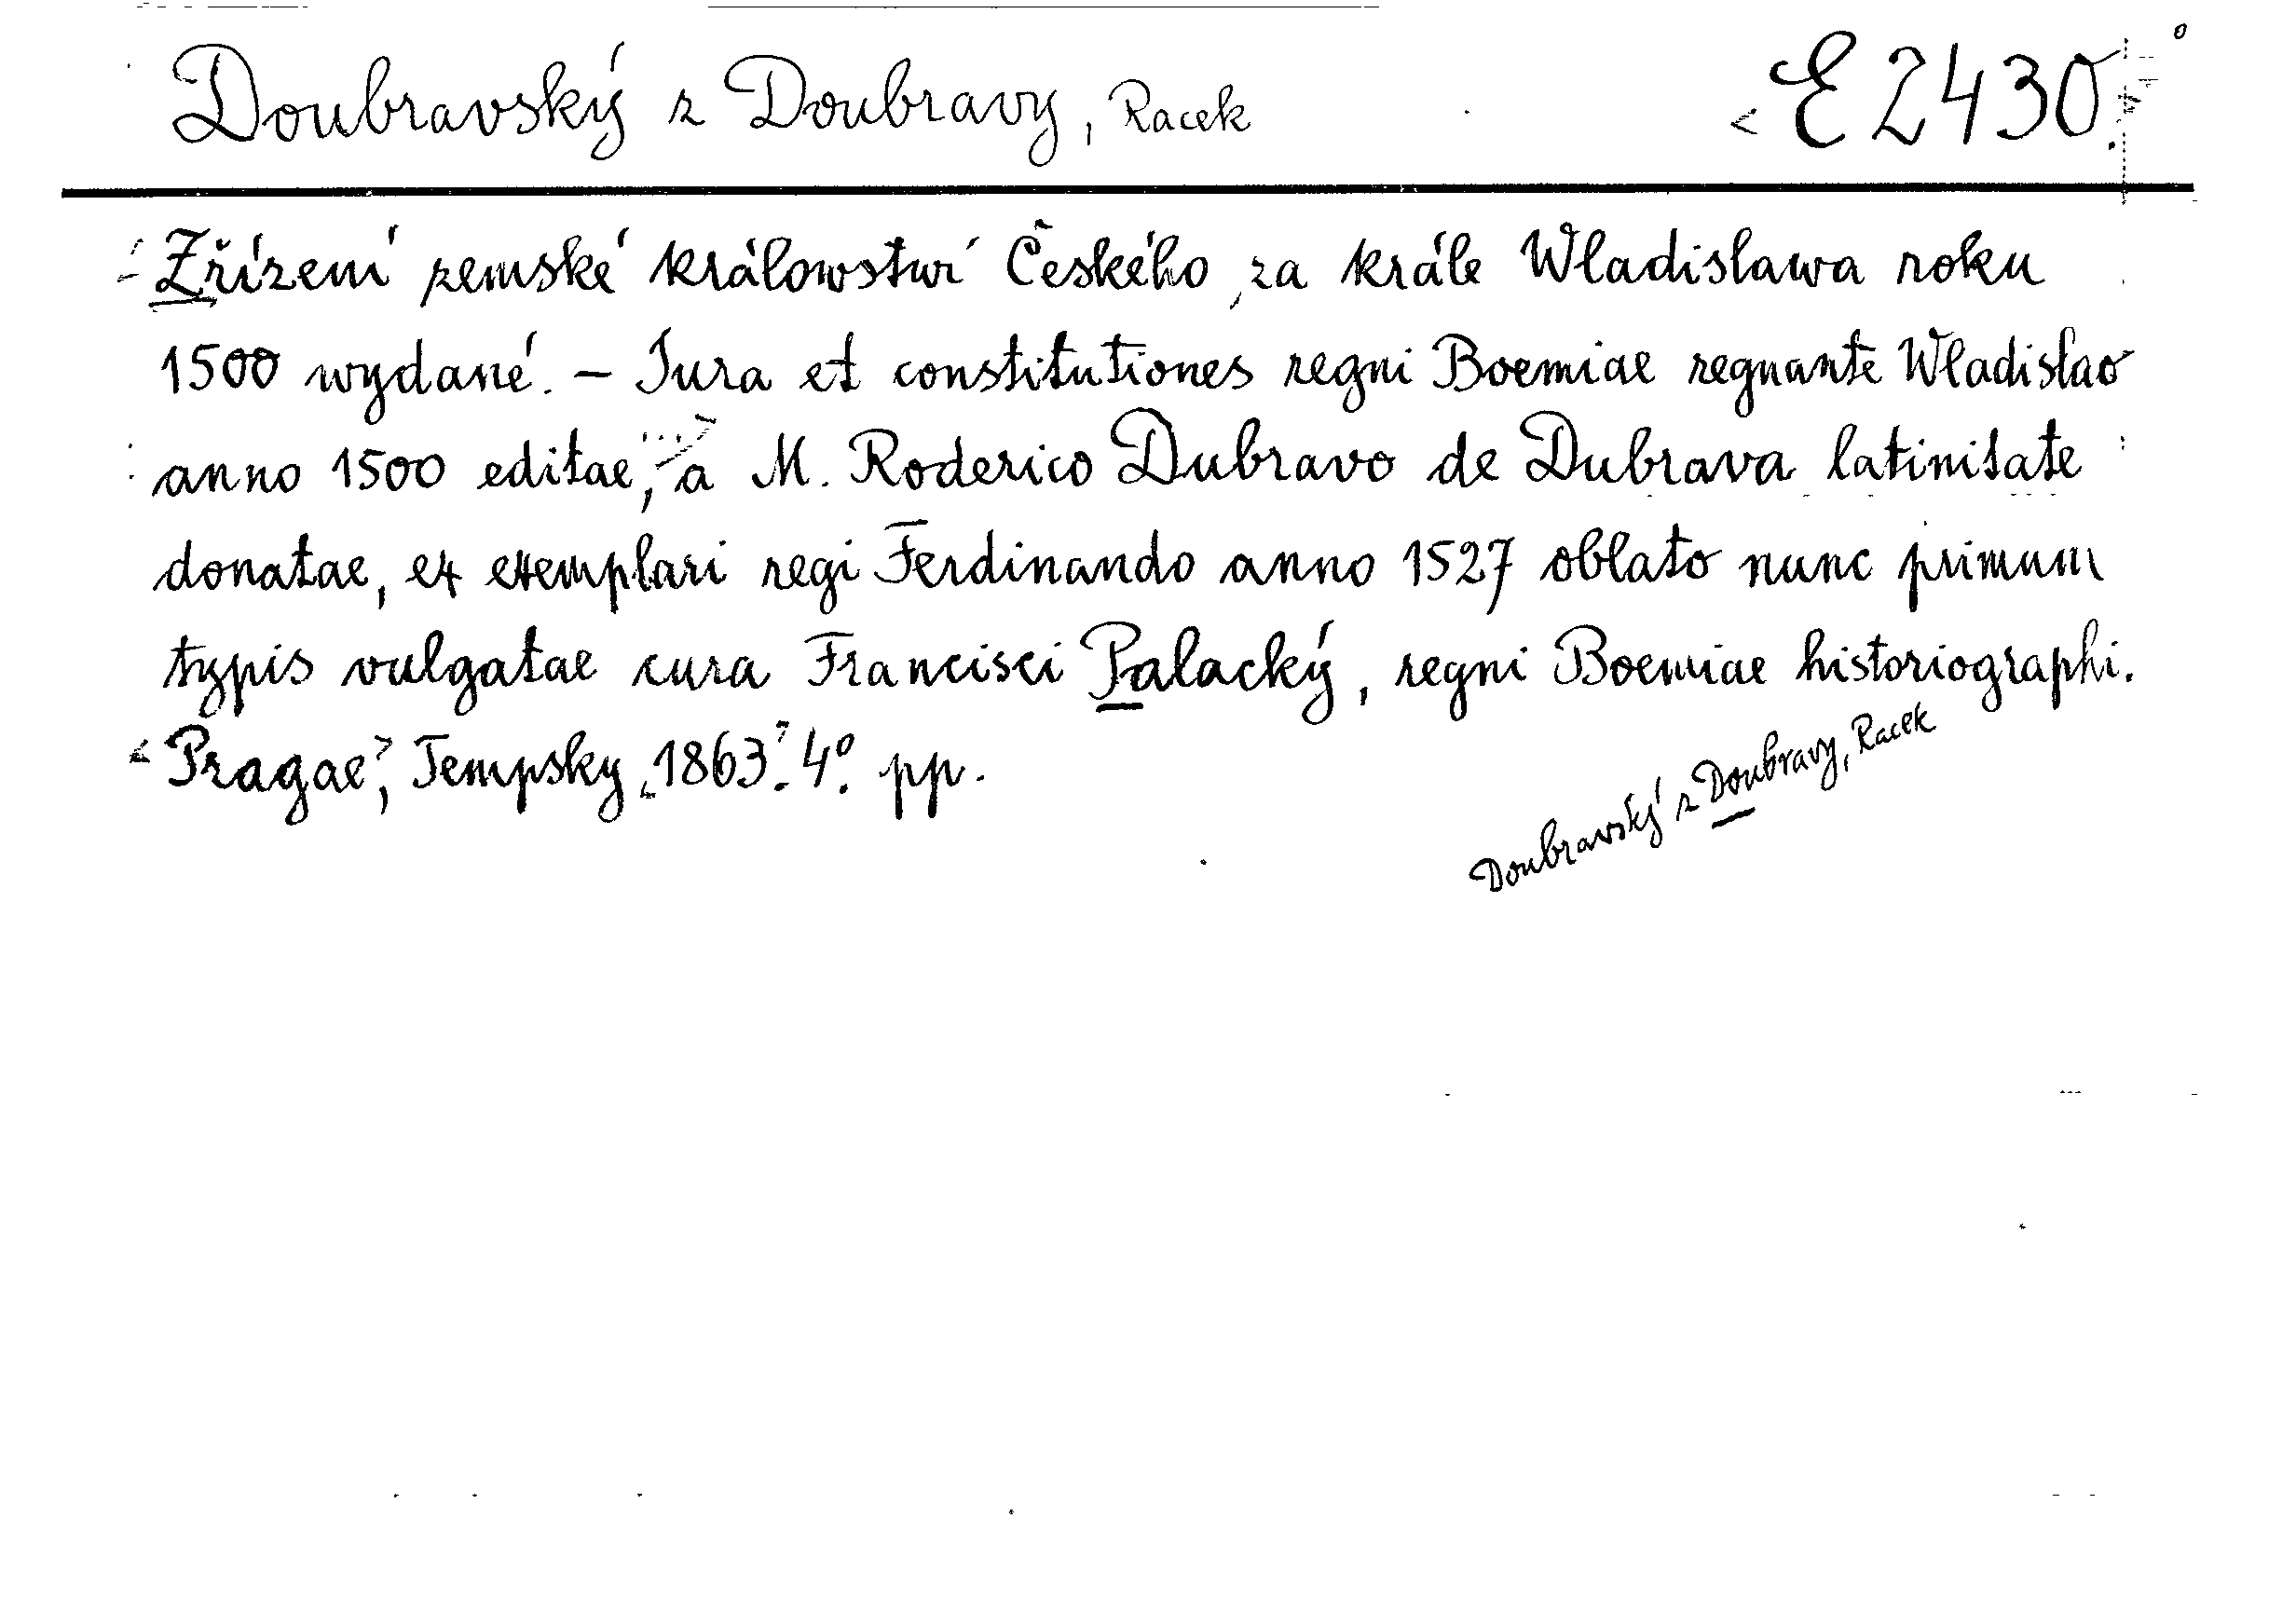 Doubravský z Doubravy, Racek E 2430.
Zřízení zemské králowstwí Českého za krále Wladislawa roku
1500 wydané. – Jura et constitutiones regni Boemiae regnante Wladislao
anno 1500 editae, a M. Roderico Dubravo de Dubrava latinitate
donatae, ex exemplari regi Ferdinando anno 1527 oblato nunc primum
typis vulgatae cura Francisci Palacký, regni Boemiae historiographi.
Pragae, Tempsky 1863. 4º. pp.
Doubravský z Doubravy, Racek